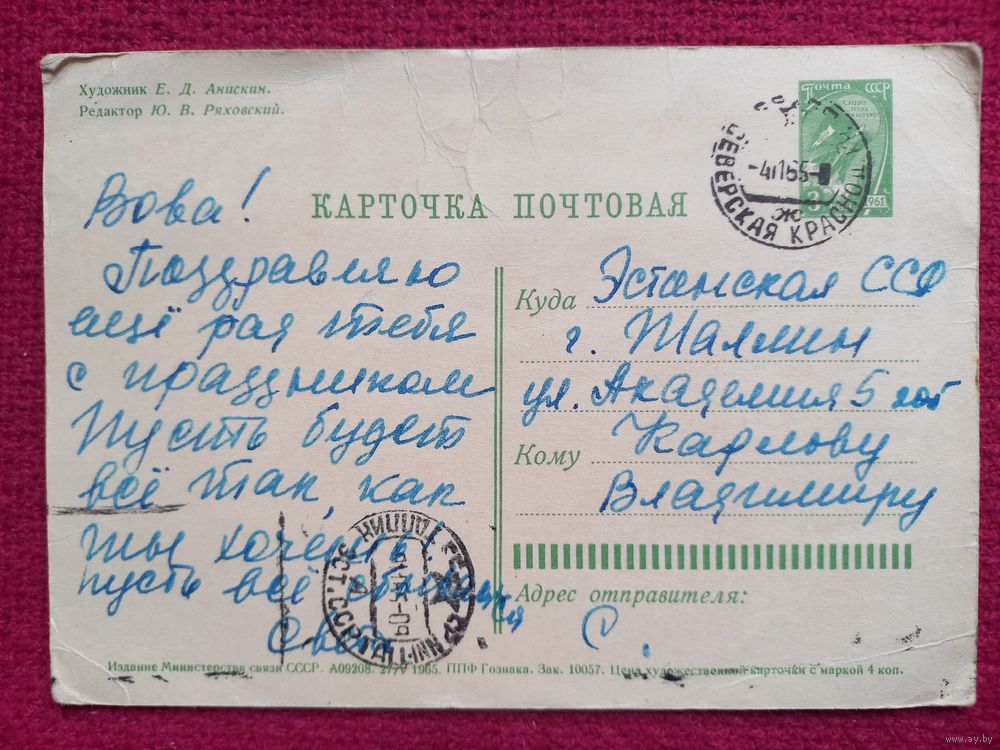 Художник Е. Д. Анискин.
Редактор Ю. В. Ряховский.
ПОЧТА СССР
1961
СЕВЕРСКАЯ КРАСНО
-4 11 65-
Ж
КАРТОЧКА ПОЧТОВАЯ
Вова!
Поздравляю
ещё раз тебя
с праздником
Пусть будет
всё так как
ты хочешь!
пусть всё
Света
Куда Эстонская ССР
г. Таллин
ул. Академия 5
Кому Карлову
Владимиру
Адрес отправителя:
С.
ТАЛЛИН
ЭСТ. ССР
TALLINN
Издание Министерства связи СССР. А09208. 27/V 1965. ППФ Гознака. Зак. 10057. Цена художественной карточки с маркой 4 коп.
www.ay.by